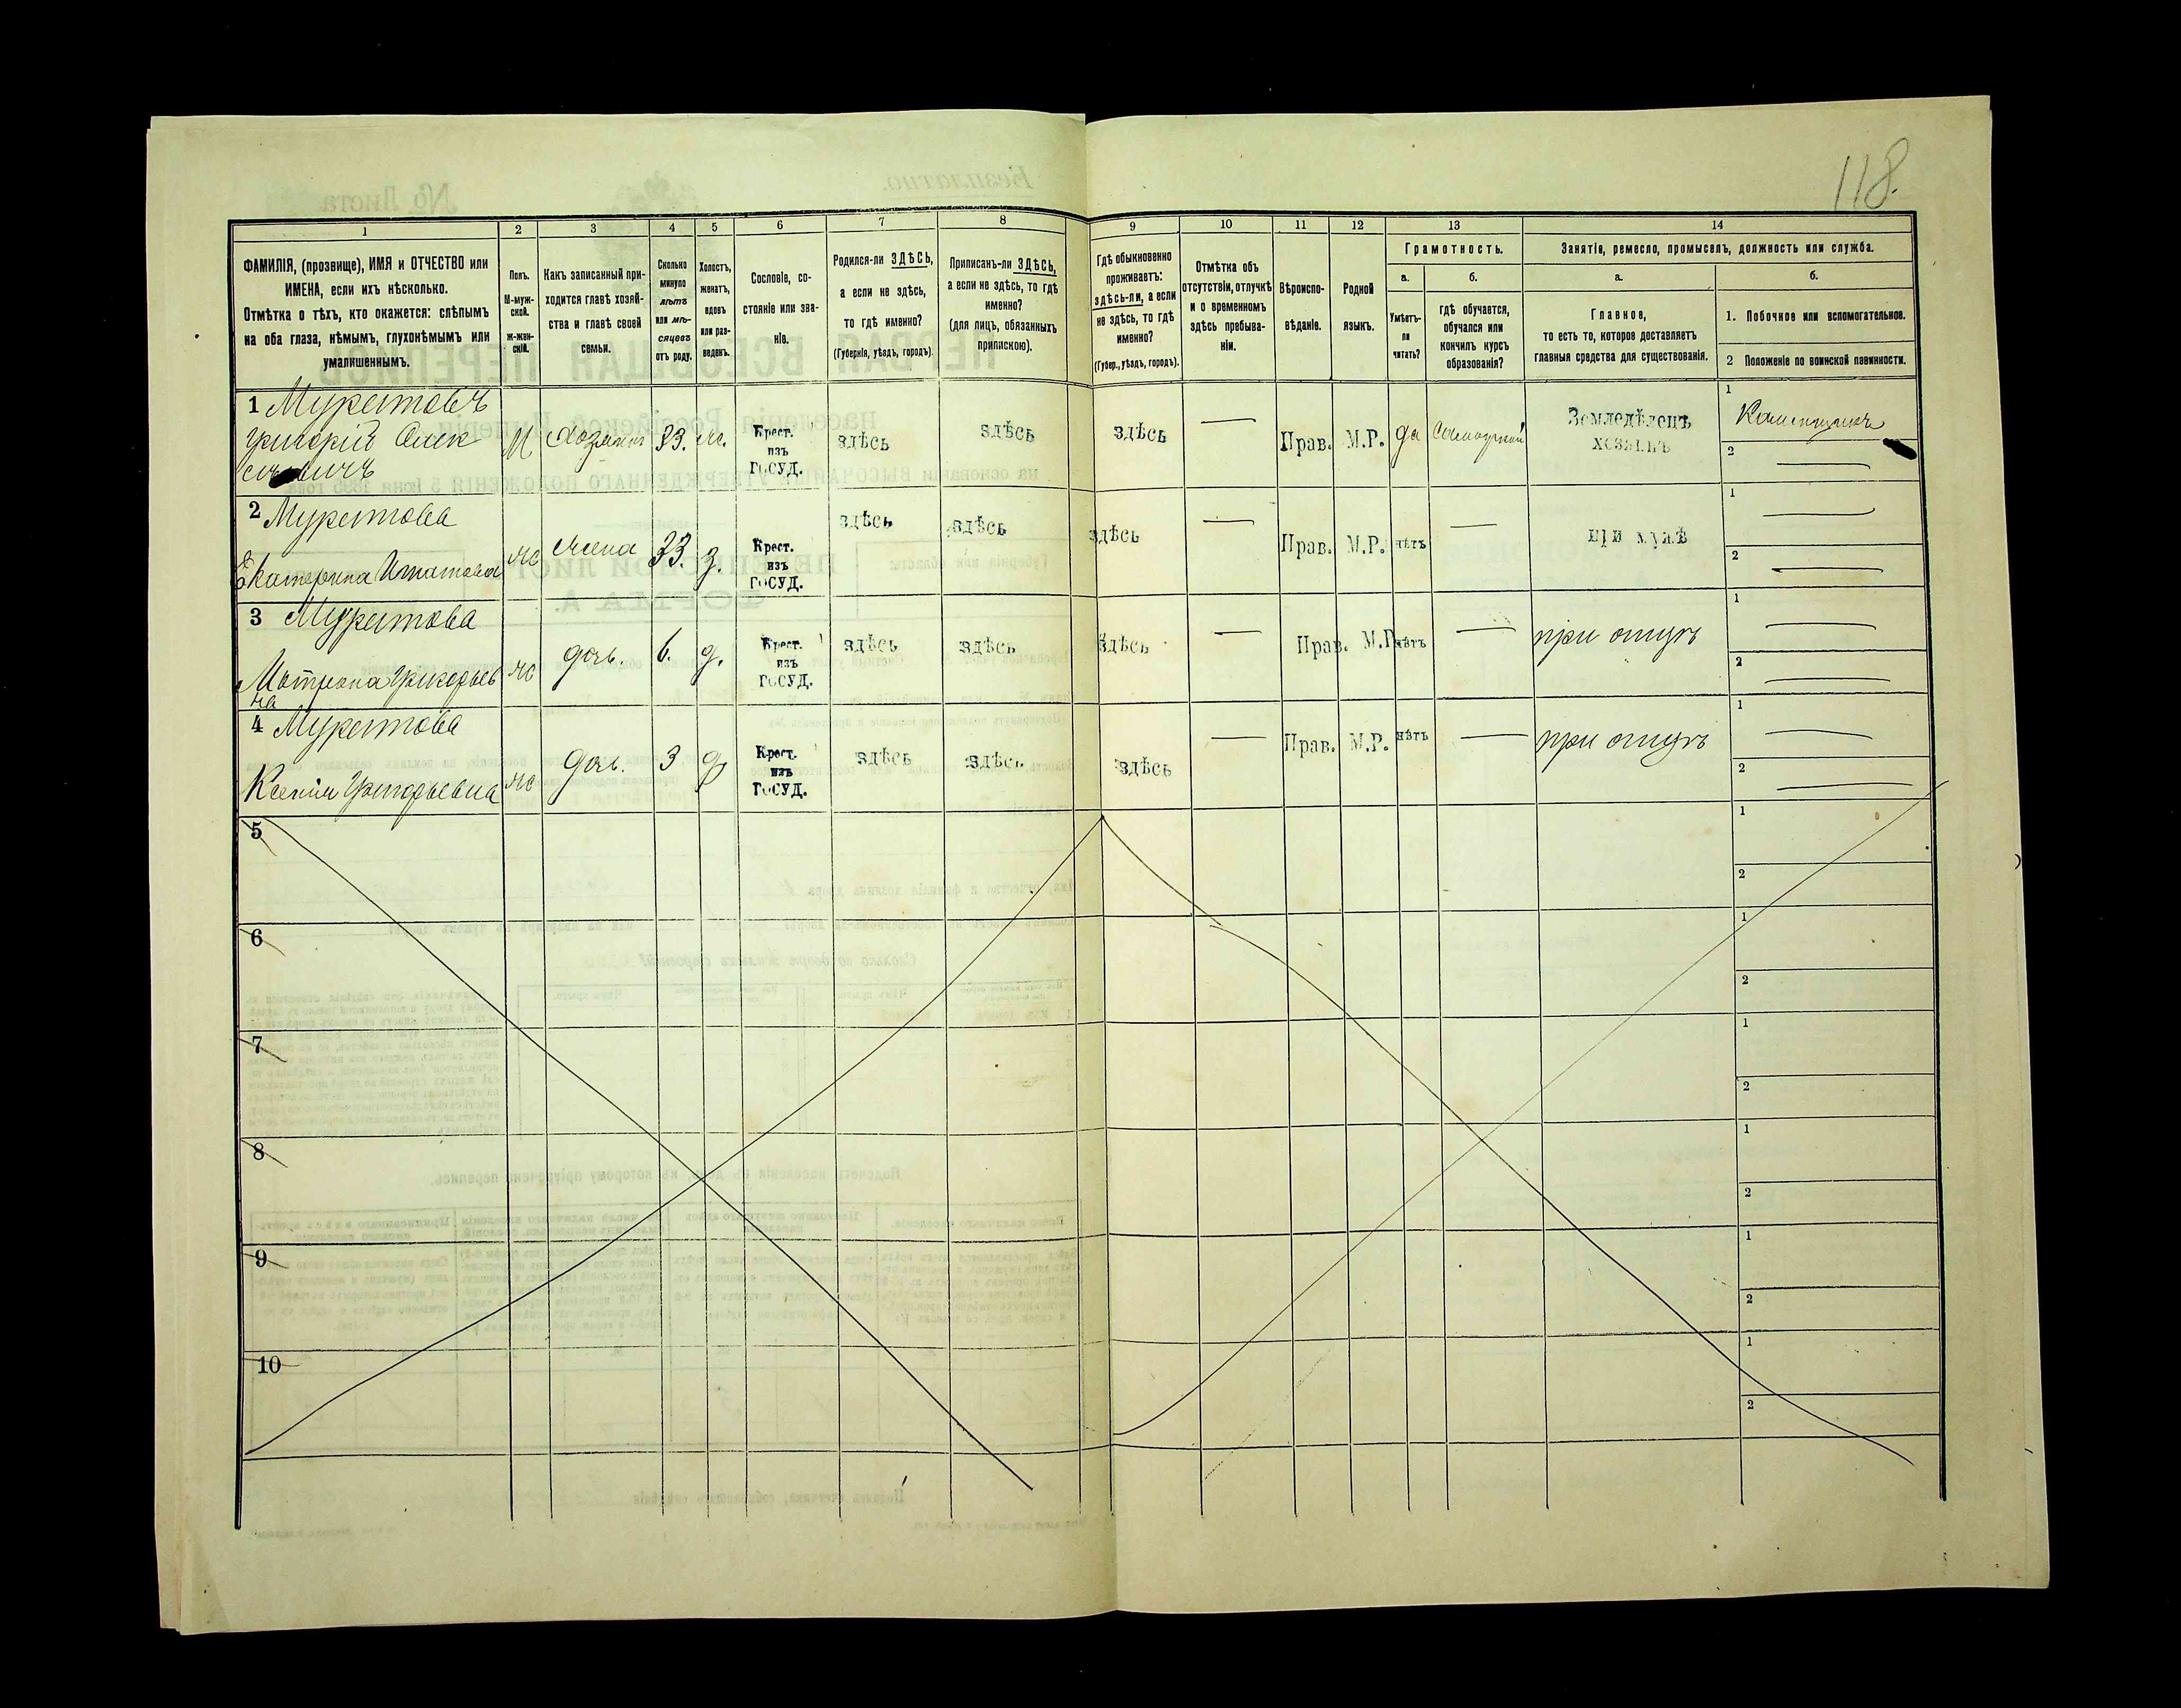 118.
1 2 3 4 5 6 7 8 9 10 11 12 13 14
ФАМИЛІЯ, (прозвище), ИМЯ и ОТЧЕСТВО или
ИМЕНА, если ихъ нѣсколько.
Отмѣтка о тѣхъ, кто окажется: слѣпымъ
на оба глаза, нѣмымъ, глухонѣмымъ или
умалишеннымъ.
Полъ.
М-муж-
ской.
ж-жен-
скій.
Какъ записанный при-
ходится главѣ хозяй-
ства и главѣ своей
семьи.
Сколько
минуло
лѣтъ
или мѣ-
сяцевъ
отъ роду.
Холостъ,
женатъ,
вдовъ
или раз-
веденъ.
Сословіе, со-
стояніе или зва-
ніе.
Родился-ли ЗДѢСЬ,
а если не здѣсь,
то гдѣ именно?
(Губернія, уѣздъ, городъ).
Приписанъ-ли ЗДѢСЬ,
а если не здѣсь, то гдѣ
именно?
(для лицъ, обязанныхъ
припискою).
Гдѣ обыкновенно
проживаетъ:
здѣсь-ли, а если
не здѣсь, то гдѣ
именно?
(Губер., уѣздъ, городъ).
Отмѣтка объ
отсутствіи, отлучкѣ
и о временномъ
здѣсь пребыва-
ніи.
Вѣроиспо-
вѣданіе.
Родной
языкъ.
Грамотность.
а.
Умѣетъ-
ли
читать?
б.
гдѣ обучается,
обучался или
кончилъ курсъ
образованія?
Занятіе, ремесло, промыселъ, должность или служба.
а.
Главное,
то есть то, которое доставляетъ
главныя средства для существованія.
б.
1. Побочное или вспомогательное.
2 Положеніе по воинской повинности.
1 Муратовъ
Григорій Алек
сѣевичъ
М Хозяинъ 33. ж.
Крест.
изъ
ГОСУД.
здѣсь здѣсь здѣсь — Прав. М.Р. да Самоучкой
Земледѣлецъ
хозяинъ
1 Каменщикъ
2 —
2 Муратова
Екатерина Игнатова
ж жена 33. з.
Крест.
изъ
ГОСУД.
здѣсь здѣсь здѣсь — Прав. М.Р. нѣтъ — при мужѣ
1 —
2 —
3 Муратова
Матрона Григорьев
на
ж дочь. 6. д.
Крест.
изъ
ГОСУД.
здѣсь здѣсь здѣсь — Прав. М.Р. нѣтъ — при отцѣ
1 —
2 —
4 Муратова
Ксенія Григорьевна
ж дочь. 3 д
Крест.
изъ
ГОСУД.
здѣсь здѣсь здѣсь — Прав. М.Р. нѣтъ — при отцѣ
1 —
2 —
5
1
2
6
1
2
7
1
2
8
1
2
9
1
2
10
1
2